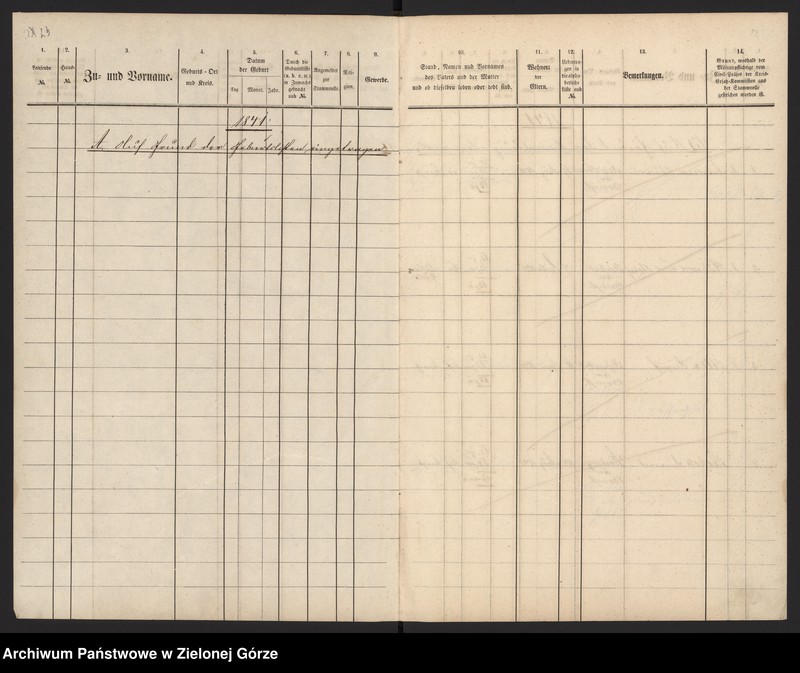 1.
Laufende
№.
2.
Haus-
№.
3.
Zu- und Vorname.
4.
Geburts-Ort
und Kreis.
5.
Datum
der Geburt
Tag Monat. Jahr.
6.
Durch die
Geburtsliste
in Zuwachs
gebracht
sub №.
7.
Angemeldet
zur
Stammrolle.
8.
Reli-
gion.
9.
Gewerbe.
10.
Stand, Namen und Vornamen
des Vaters und der Mutter
und ob dieselben leben oder todt sind.
11.
Wohnort
der
Eltern.
12.
13.
Bemerkungen.
14.
Grund, weshalb der
Militairpflichtige vom
Civil-Präses der Kreis-
Ersatz-Kommission aus
der Stammrolle
gestrichen worden ist.
1871.
A. Auf Grund der Geburtslisten eingetragen
Archiwum Państwowe w Zielonej Górze